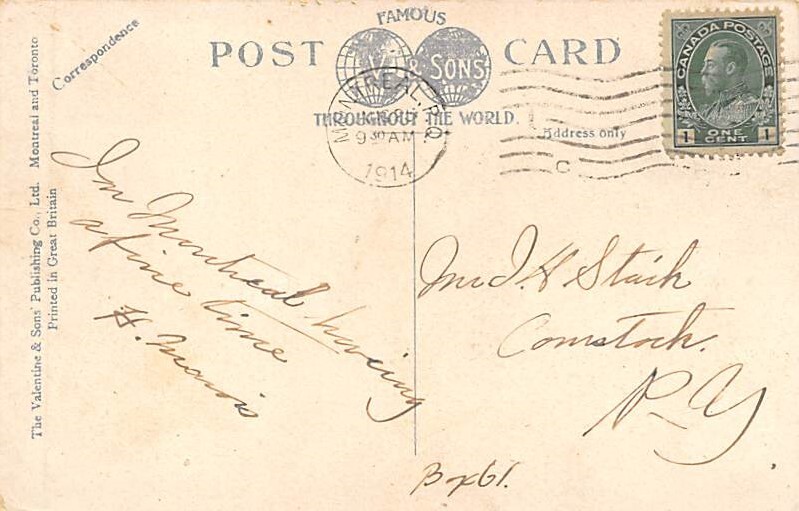 FAMOUS
POST CARD
& SONS
THROUGHOUT THE WORLD.
Correspondence
Address only
MONTREAL, P.Q.
9 30 AM
1914
C
CANADA POSTAGE
1 ONE CENT 1
The Valentine & Sons' Publishing Co., Ltd. Montreal and Toronto
Printed in Great Britain
In Montreal having
a fine time
H. Morris
J. H Stark
Comstock.
N-Y
Box 61.